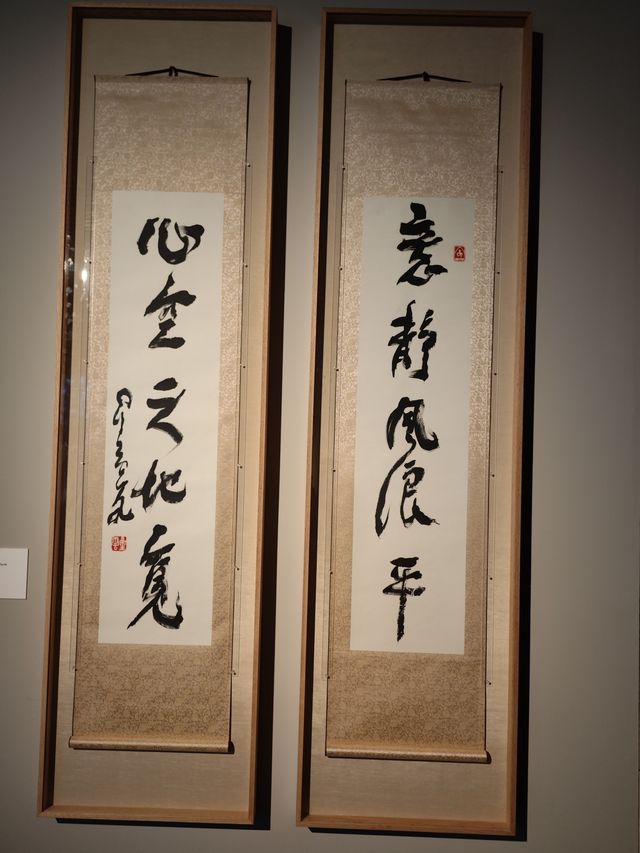 意靜風浪平
心空天地寬